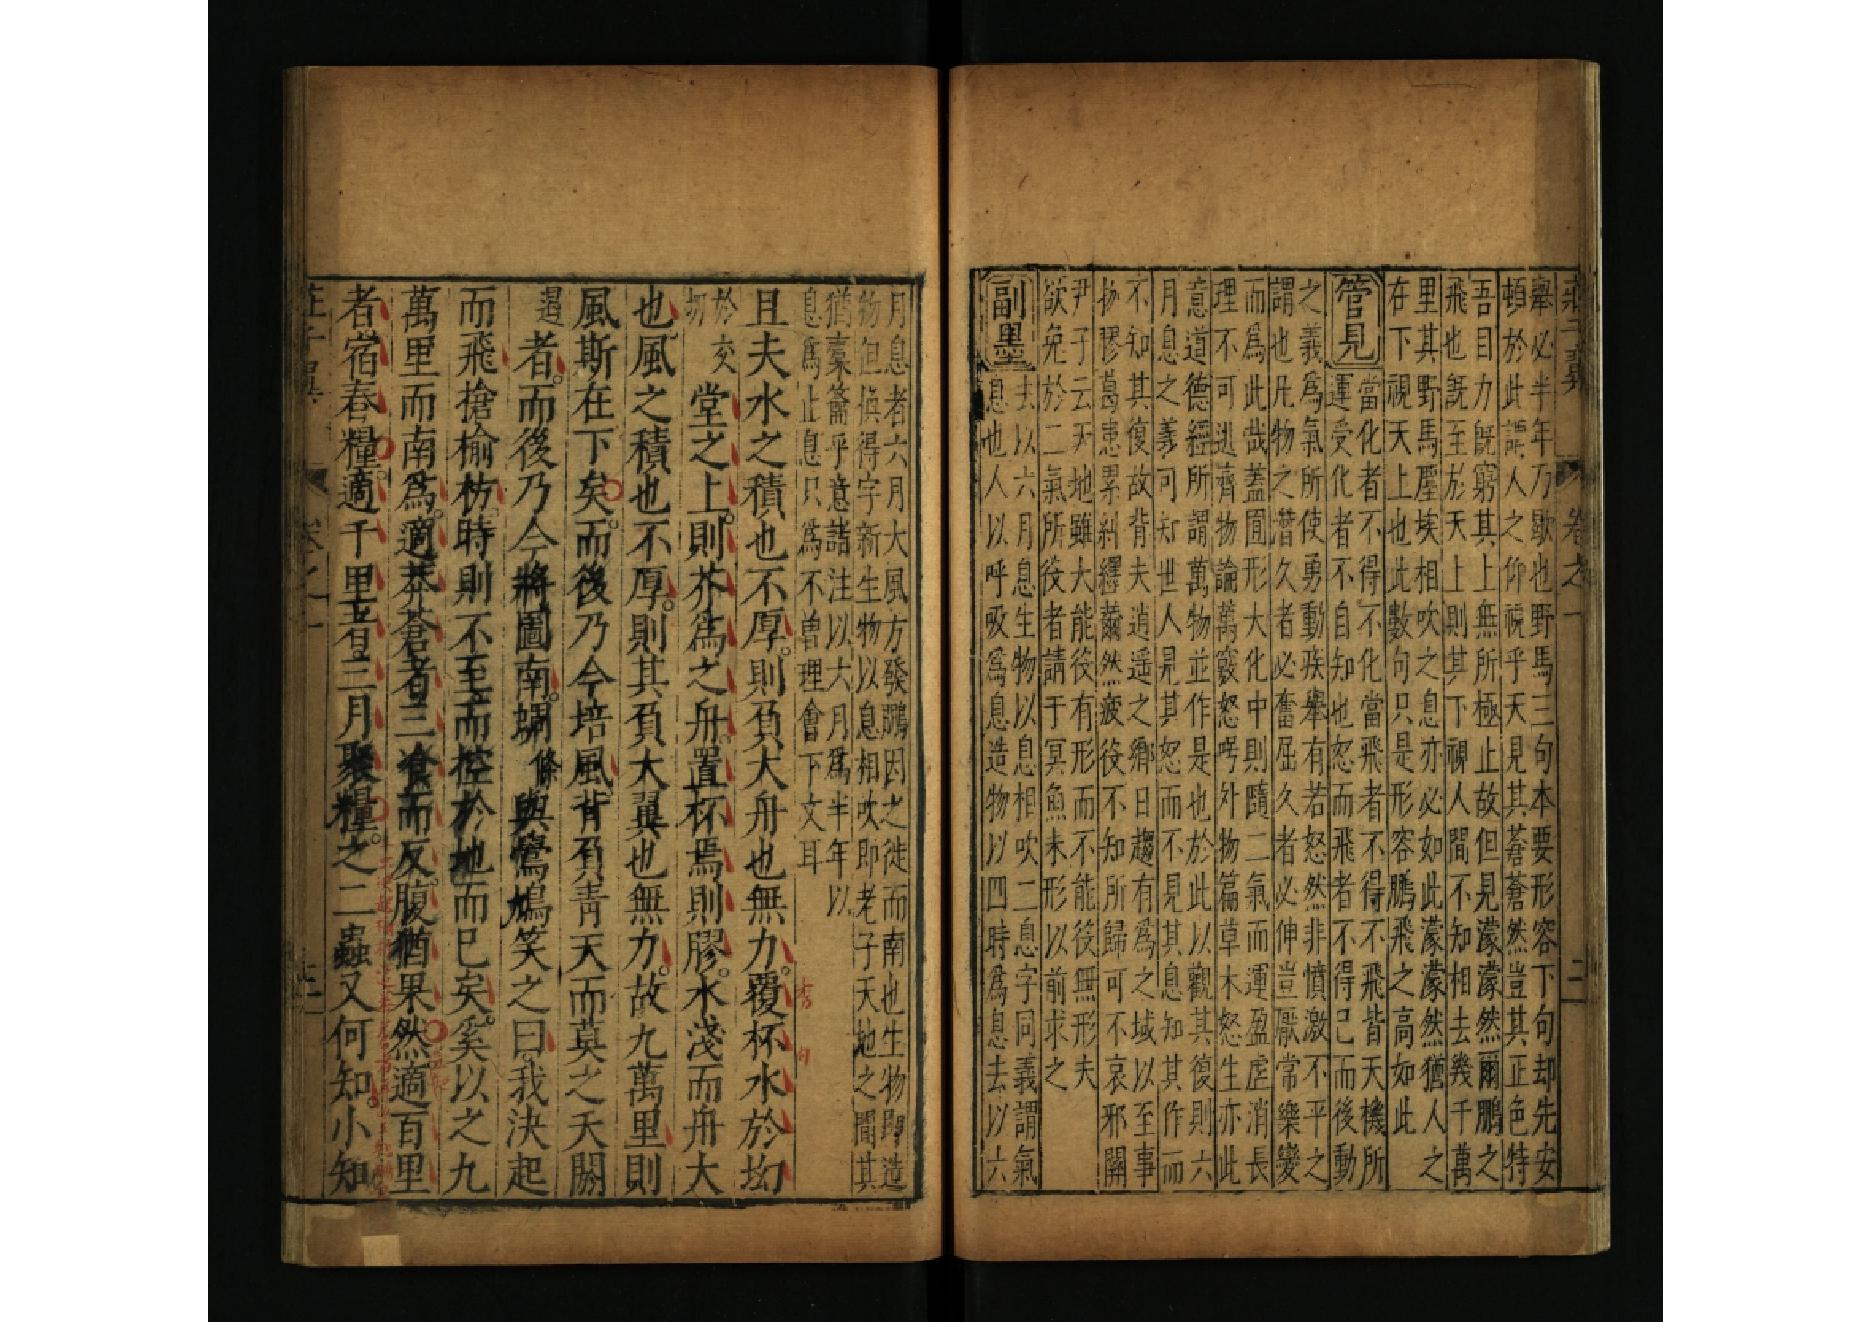 莊子翼 卷之一 二
舉必半年乃歇也野馬三句本要形容下句却先安
頓於此謂人之仰視乎天見其蒼蒼然豈其正色特
吾目力旣窮其上無所極止故但見濛濛然爾鵬之
飛也旣至於天上則其下視人間不知相去幾千萬
里其野馬塵埃相吹之息亦必如此濛濛然猶人之
在下視天上也此數句只是形容鵬飛之高如此
管見
當化者不得不化當飛者不得不飛皆天機所
運受化者不自知也怒而飛者不得已而後動
之義爲氣所使勇動疾舉有若怒然非憤激不平之
謂也凡物之潛久者必奮屈久者必伸豈厭常樂變
而爲此哉蓋囿形大化中則隨二氣而運盈虛消長
理不可逃齊物論萬竅怒呺外物篇草木怒生亦此
意道德經所謂萬物並作是也於此以觀其復則六
月息之義可知世人見其怒而不見其息知其作而
不知其復故背夫逍遥之鄉日趨有爲之域以至事
物膠葛患累糾纆薾然疲役不知所歸可不哀邪關
尹子云天地雖大能役有形而不能役無形夫
欲免於二氣所役者請于冥魚未形以前求之
副墨
去以六月息生物以息相吹二息字同義謂氣
息也人以呼吸爲息造物以四時爲息去以六
月息者六月大風方發鵬因之徙而南也生物即造
物但換得字新生物以息相吹即老子天地之間其
猶橐籥乎意諸注以六月爲半年以
息爲止息只爲不曾理會下文耳
且夫水之積也不厚。則負大舟也無力。覆杯水於坳
於交切
堂之上。則芥爲之舟。置杯焉則膠。水淺而舟大
也風之積也不厚。則其負大翼也無力。故九萬里則
風斯在下矣。而後乃今培風背負青天而莫之夭閼
遏
者。而後乃今將圖南。蜩
條
與鷽鳩笑之曰。我決起
而飛搶榆枋。時則不至而控於地而已矣。奚以之九
萬里而南爲。適莽蒼者三飡而反。腹猶果然。適百里
者宿舂糧。適千里者。三月聚糧。之二蟲又何知。小知
莊子翼 卷之一